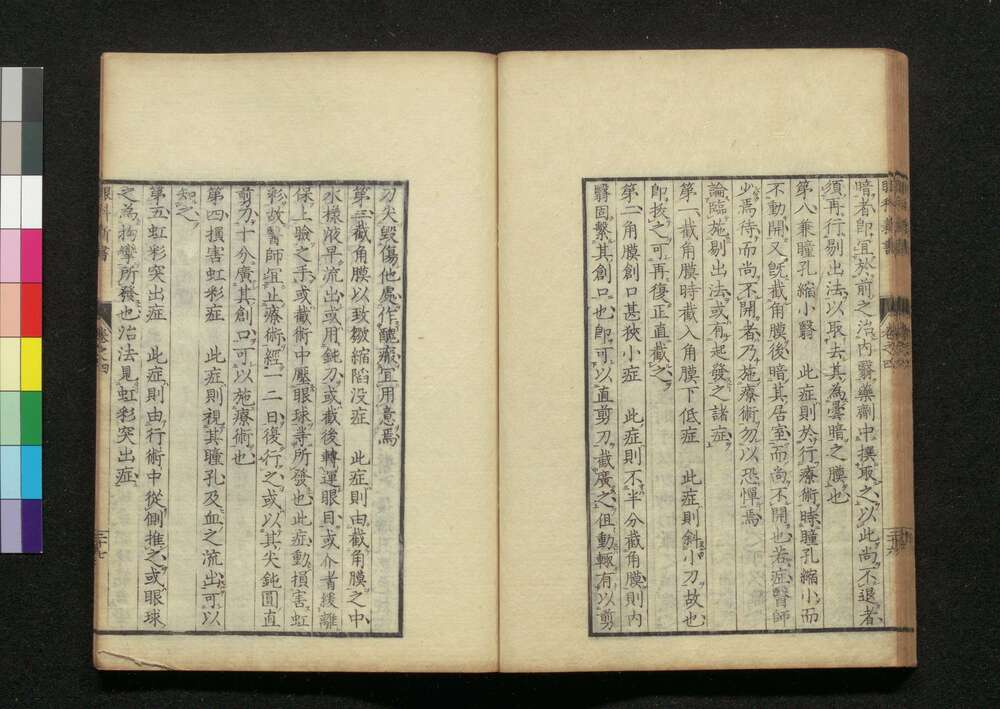 暗者卽宜於前之治內翳藥劑中撰取之以此尚不退者
須再行剔出法以取去其為雲暗之膜也
第八兼瞳孔縮小翳　此症則於行療術時瞳孔縮小而
不動開又旣截角膜後暗其居室而尚不開也若症醫師
少焉待而尚不開者乃施療術勿以恐憚焉
論臨施剔出法或有起發之諸症
第一截角膜時截入角膜下低症　此症則斜小刀故也
卽拔之可再復正直截之
第二角膜創口甚狹小症　此症則不半分截角膜則內
翳固繫其創口也卽可以直剪刀截廣之但動輒有以剪
刀尖毀傷他處作醜瘢宜用意焉
第三截角膜以致皺縮陷没症　此症則由截角膜之中
水樣液早流出或用鈍刀或截後轉運眼目或介者緩離
保上瞼之手或截術中壓眼球等所發也此症動損害虹
彩故醫師宜止療術經一二日復行之或以其尖鈍圓直
剪刀十分廣其創口可以施療術也
第四損害虹彩症　此症則視其瞳孔及血之流出可以
知之
第五虹彩突出症　此症則由行術中從側推之或眼球
之為拘攣所發也治法見虹彩突出症
眼科新書
卷之四
三十七